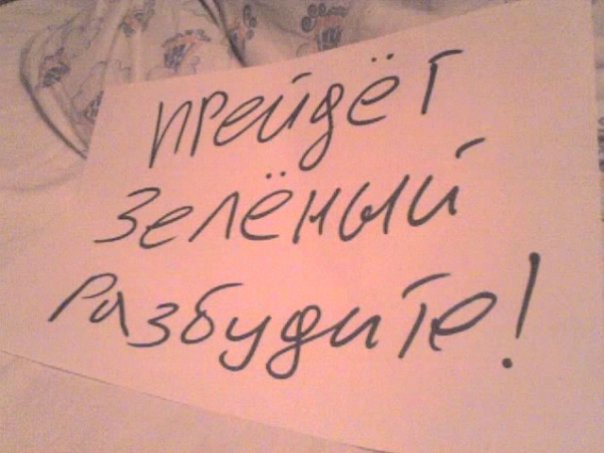 прейдёт
зелёный
разбудите!